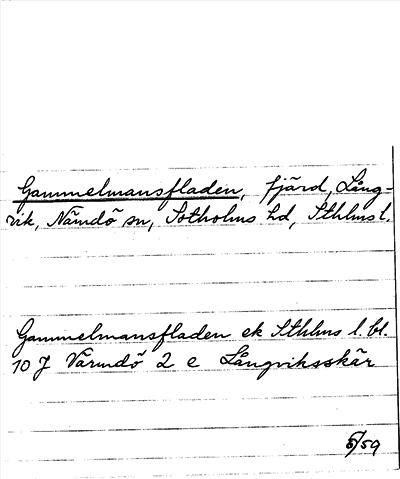 Gammelmansfladen, fjärd, Lång-
vik, Nämdö sn, Sotholms hd, Sthlms l.
Gammelmansfladen ek Sthlms l. bl.
10 J Värmdö 2 e Långviksskär
5/59